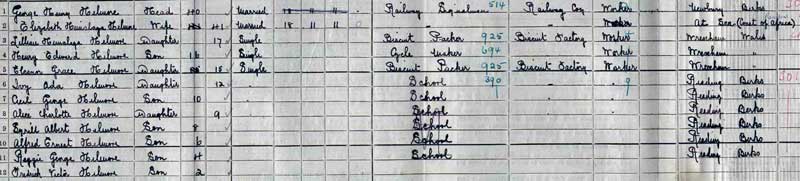 George Henry Helmore Head 40 Married 18 11 11 Railway Signalman 514 Railway Coy Worker Newbury Berks
2 Elizabeth Helmore Wife 41 Married 18 11 11 Worker At Sea (Coast of Africa)
Helmore Daughter 17 Single Biscuit Packer 925 Biscuit Factory Worker Wrexham Wales
4 Henry Edward Helmore Son 16 Single Cycle Maker 694 Worker Wrexham "
5 Eleanor Grace Helmore Daughter 15 Single Biscuit Packer 925 Biscuit Factory Worker Wrexham "
6 Ivy Ada Helmore Daughter 12 School 390 Reading Berks
7 Cecil George Helmore Son 10 School Reading Berks
8 Alice Charlotte Helmore Daughter 9 School Reading Berks
9 Cyrill Albert Helmore Son 8 School Reading Berks
10 Alfred Ernest Helmore Son 6 School Reading Berks
11 Reggie George Helmore Son 4 School Reading Berks
12 Victor Helmore Son 2